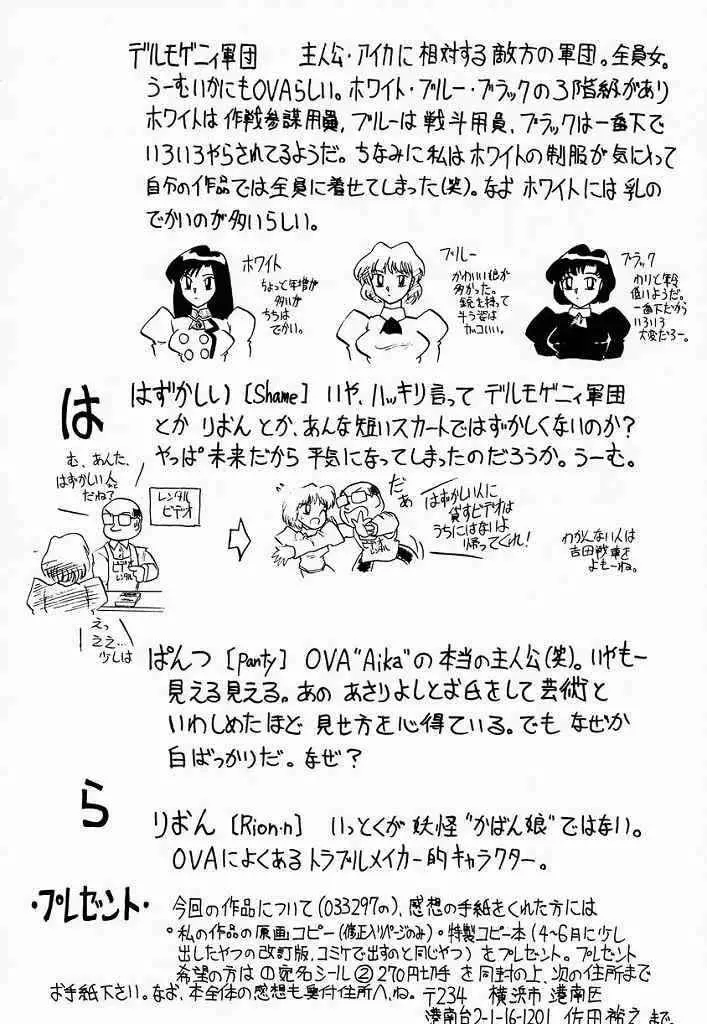 デルモゲニィ軍団　主人公・アイカに相対する敵方の軍団。全員女。
うーむいかにもOVAらしい。ホワイト・ブルー・ブラックの3階級があり
ホワイトは作戦参謀用員，ブルーは戦斗用員，ブラックは一番下で
いろいろやらされてるようだ。ちなみに私はホワイトの制服が気にいって
自分の作品では全員に着せてしまった(笑)。なお ホワイトには乳の
でかいのが多いらしい。
ホワイト
ちょっと年増が
多いが
ちちは
でかい。
ブルー
かわいい娘が
多かった。
銃を持って
斗う姿は
カッコいい。
ブラック
わりと年令
低いようだ。
一番下だから
いろいろ
大変だろー。
は
はずかしい [Shame] いや、ハッキリ言って デルモゲニィ軍団
とか りおん とか、あんな短いスカートではずかしくないのか？
やっぱ 未来だから 平気になってしまったのだろうか。うーむ。
む、あんた、
はずかしい人
だね?
レンタル
ビデオ
ビデオ
レンタル
えっ
ええ…
少しは
だぁ
はずかしい人に
貸すビデオは
うちにはないよ
帰ってくれ！
わかんない人は
吉田戦車を
よもーね。
ぱんつ [Panty] OVA"Aika"の本当の主人公(笑)。いやもー
見える見える。あの あさりよしとお氏をして芸術と
いわしめたほど 見せ方を心得ている。でも なぜか
白ばっかりだ。なぜ？
ら
りおん [Rion・n] いっとくが 妖怪"かばん娘"ではない。
OVAによくあるトラブルメイカー的キャラクター。
・プレゼント・
今回の作品について(033297の)、感想の手紙をくれた方には
・私の作品の原画コピー(修正入りページのみ)・特製コピー本(4〜6月に少し
出したやつの改訂版、コミケで出すのと同じやつ)をプレゼント。プレゼント
希望の方は①宛名シール②270円切手を同封の上、次の住所まで
お手紙下さい。なお、本全体の感想も奥付住所へ、ね。〒234 横浜市港南区
港南台2-1-16-1201 佐田裕之まで